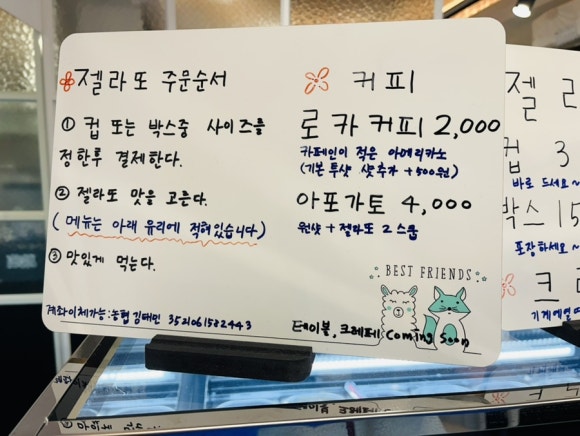 젤라또 주문순서
① 컵 또는 박스중 사이즈를
정한루 결제한다.
② 젤라또 맛을 고른다.
(메뉴는 아래 유리에 적혀있습니다.)
③ 맛있게 먹는다.
계좌이체가능:농협 김태민 3521061582443
커피
로카커피 2,000
카페인이 적은 아메리카노
(기본 투샷 샷추가 +500원)
아포가토 4,000
원샷 + 젤라또 2스쿱
BEST FRIENDS
테이블, 크레페 Coming Soon
젤라
컵 3
바로 드세요~
박스 15
포장하세요~
크